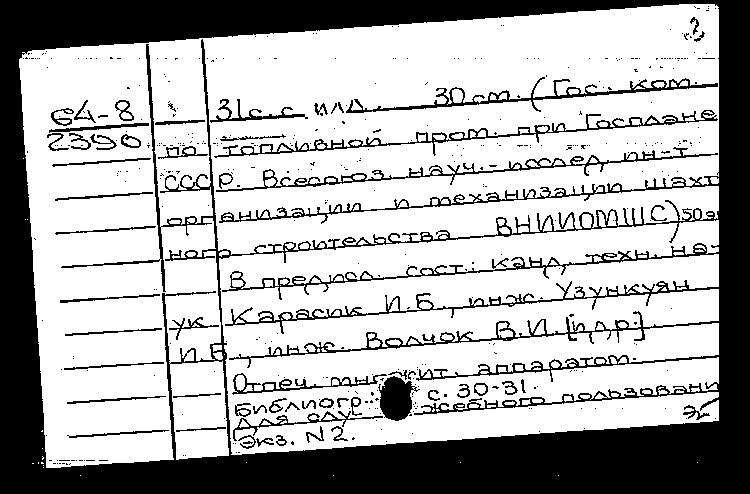 2
64-8
2390
31 с. с илл. 30 см. (Гос. ком.
по топливной пром. при Госплане
СССР. Всесоюз. науч.-исслед. ин-т
организации и механизации шахт
ного строительства ВНИИОМШС) 50 эк
В предисл. сост.: канд. техн. на-
ук Карасик И.Б., инж. Узункуян
И.Б., инж. Волчок В.И. [и др.]
Отпеч. множит. аппаратом.
Библиогр.: с. 30-31.
Для слу жебного пользовани
Экз. N 2.